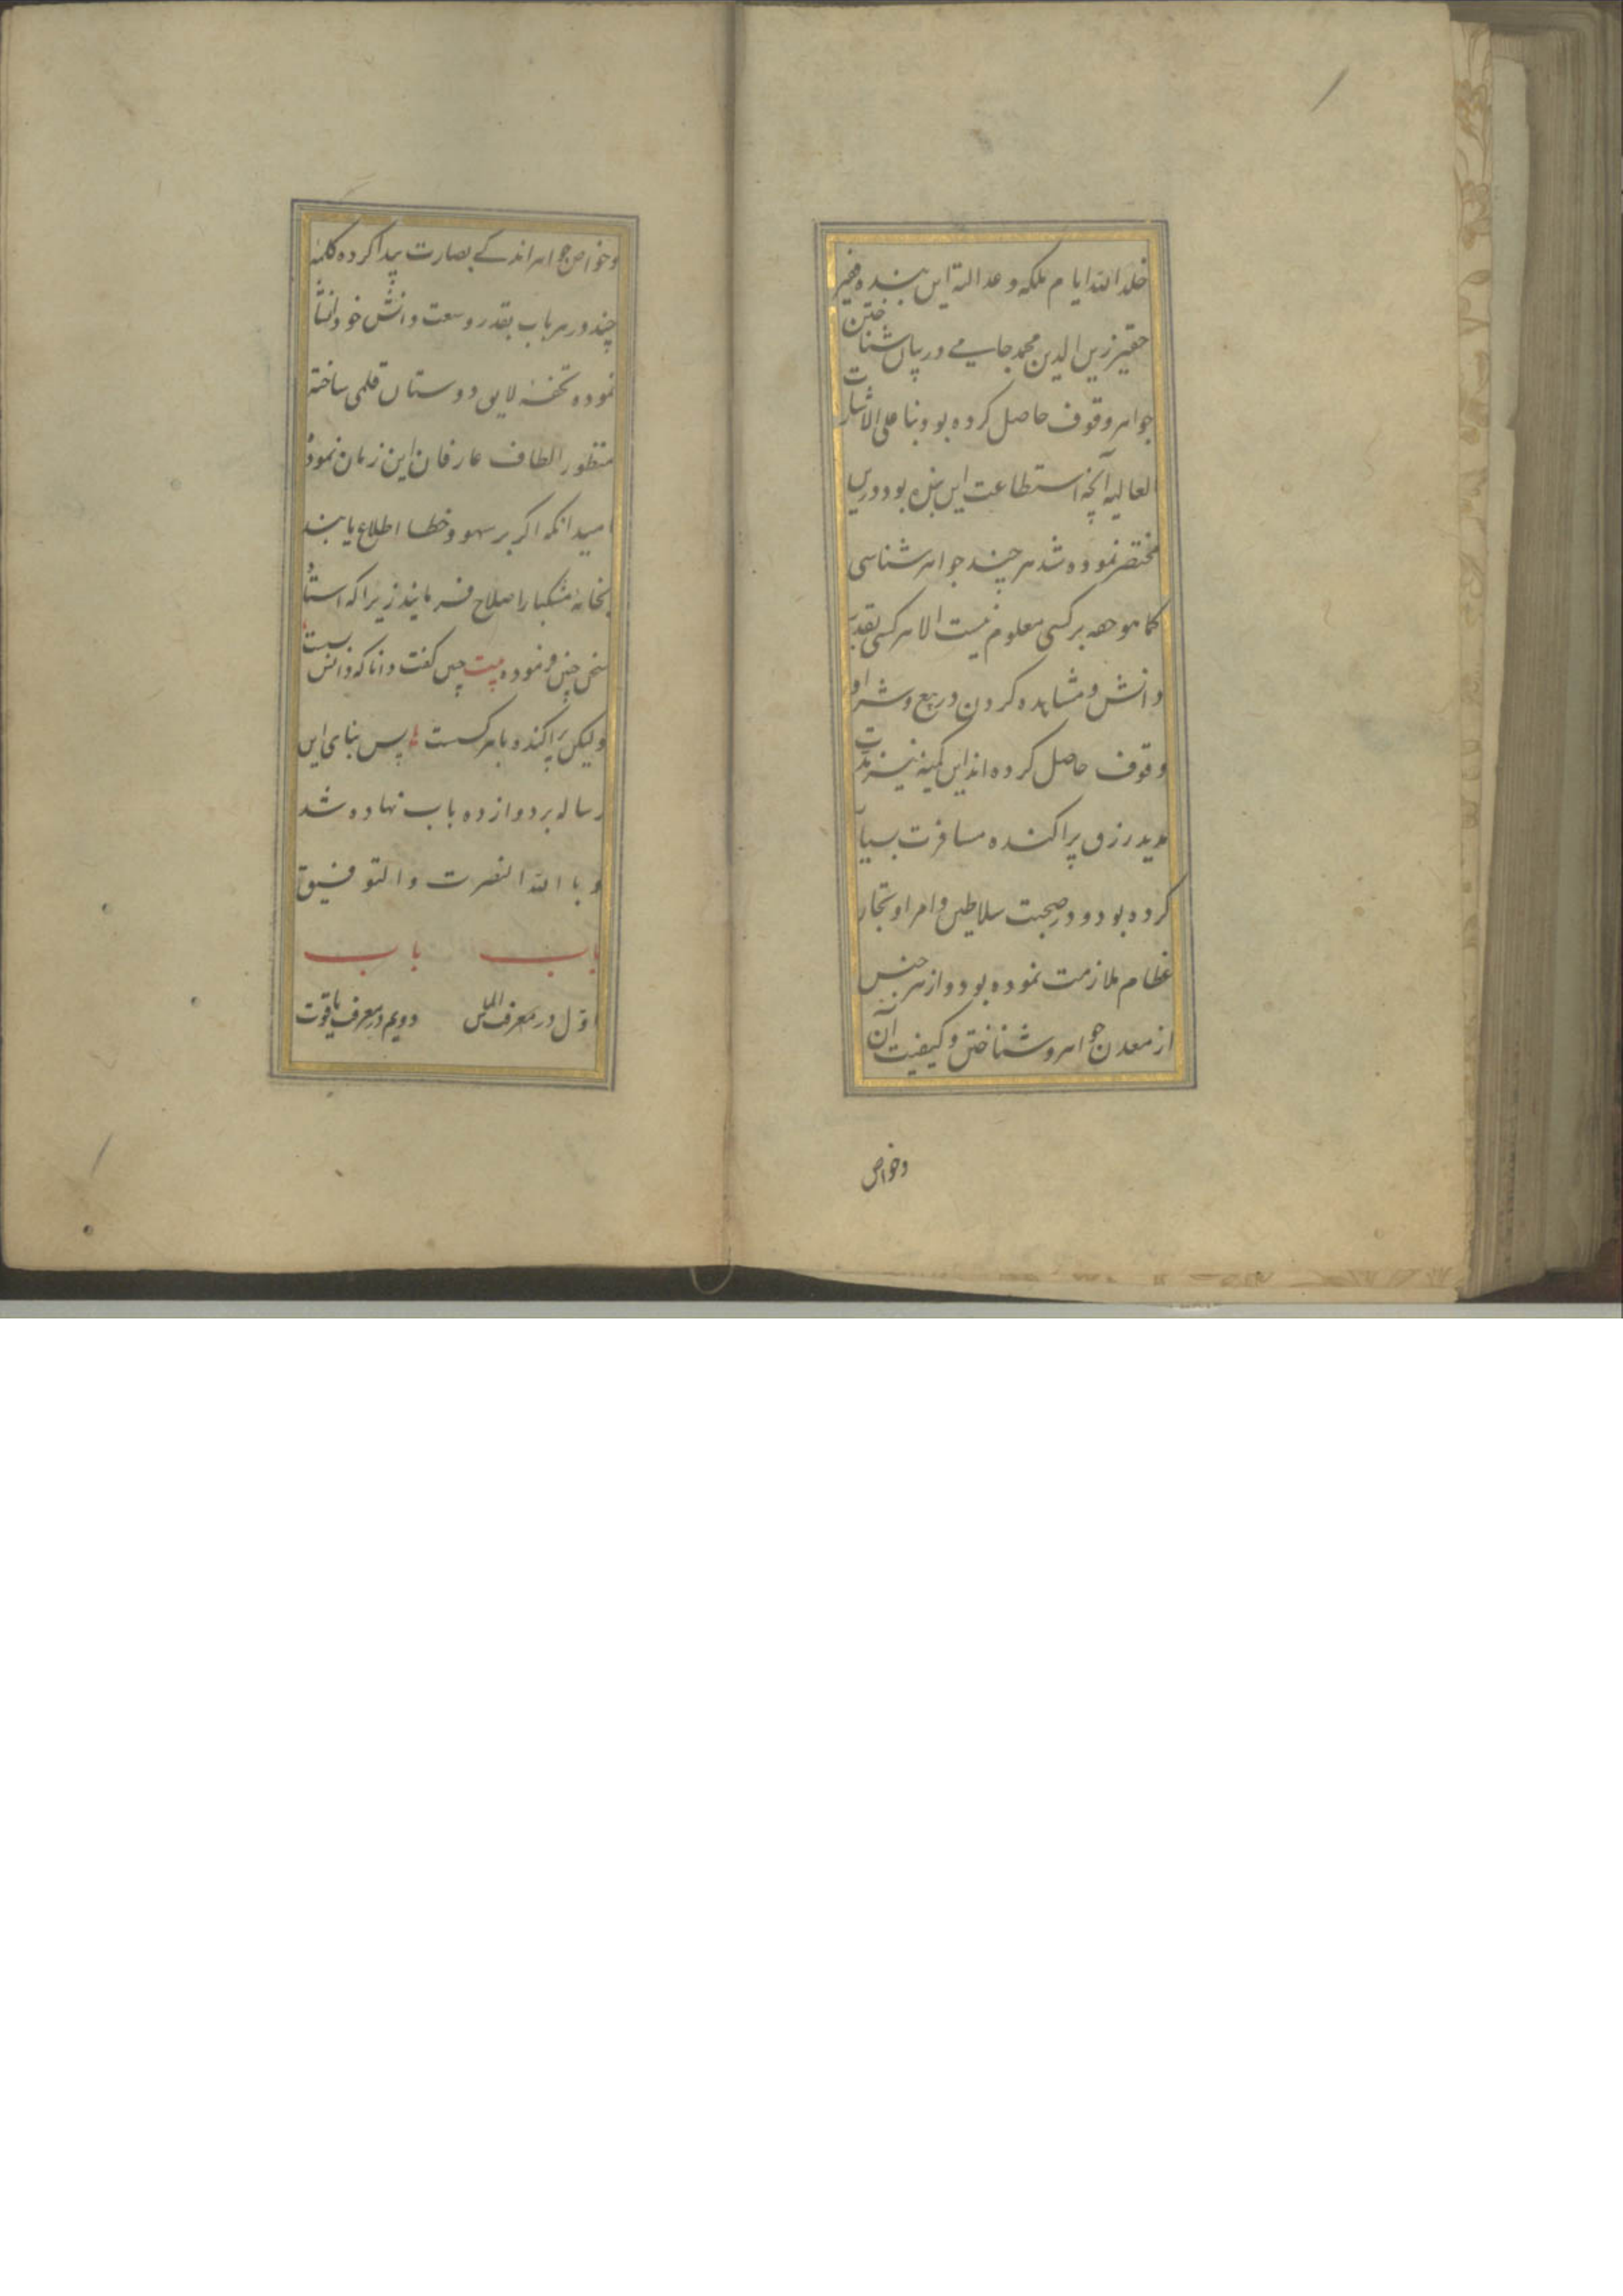 خلد الله ایام ملکه و عدالته این بنده فقیر
حقیر زین الدین محمد جامی در بیان شناختن
جواهر وقوف حاصل کرده بود بنا علی الاشارت
العالیه آنچه استطاعت این بنده بود درین
مختصر نموده شد هر چند جواهر شناسی
کما هو حقه بر کسی معلوم نیست الا هر کسی بقدر
دانش و مشاهده کردن در بیع و شرا و
وقوف حاصل کرده اند این کمینه نیز مدت
مدید رزق پراکنده مسافرت بسیار
کرده بود و در صحبت سلاطین و امرا و تجار
عظام ملازمت نموده بود و از هر جنس
از معدن جواهر و شناختن و کیفیت آن
وخواص
وخواص جواهر اندکے بصارت پیدا کرده کلمهٔ
چند در هر باب بقدر وسعت دانش خود انشا
نموده تحفهٔ لایق دوستان قلمی ساخته
منظور الطاف عارفان این زمان نمود
امید انکه اکر بر سهو و خطا اطلاع یابند
بخامهٔ مشکبار اصلاح فرمایند زیرا که استاد
سخن چنین فرموده بیت چنین کفت دانا که دانش بسیست
ولیکن پراکنده با هر کسست پس بنای این
رساله بر دوازده باب نهاده شد
و با الله النصرت والتوفیق
باب باب
اول در معرف الماس دویم در معرف یاقوت